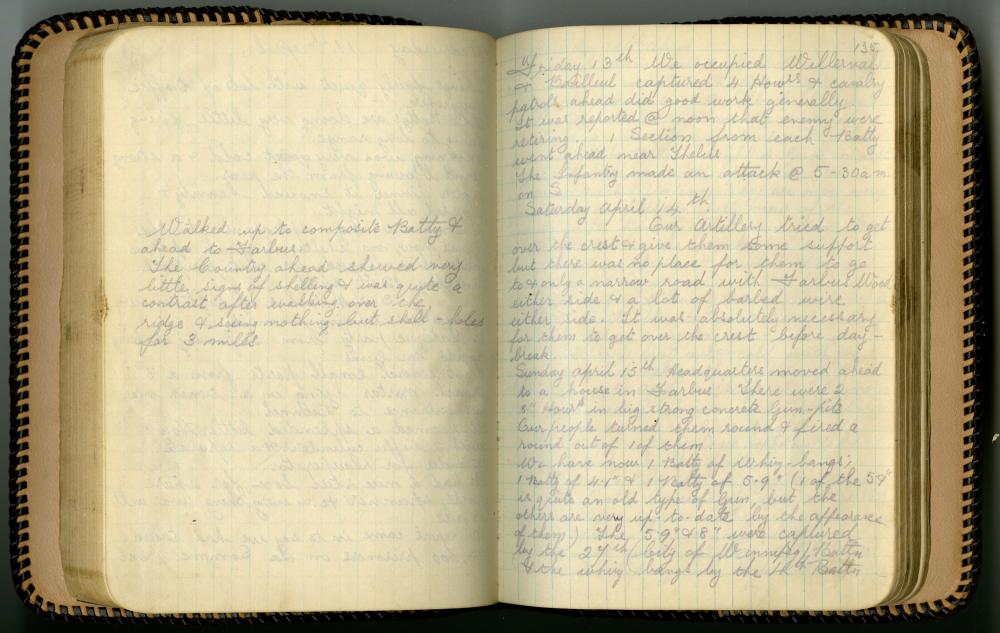 Walked up to composite Batty &
ahead to Farbus.
The Country ahead shewed very
little signs of shelling & was quite a
contrast after walking over the
ridge & seing nothing but shell-holes
for 3 mills.
135
Friday 13th We occupied Willerval
& Bailleul captured 4 Howrs & cavalry
patrols ahead did good work generally
It was reported @ noon that enemy were
retiring. 1 Section from each Batty
went ahead near Thelus
The Infantry made an attack @ 5-30am
on S
Saturday April 14th
Our Artillery tried to get
over the crest & give them some support
but there was no place for them to go
to & only a narrow road with Farbus Wood
either side & a lot of barbed wire
either side. It was absolutely necessary
for them to get over the crest before day-
break
Sunday April 15th Headquarters moved ahead
to a house in Farbus. There were 2
8" Howrs in big strong concrete Gun-Pits
Our people turned them round & fired a
round out of 1 of them
We have now 1 Batty of Whizz-bangs;
1 Batty of 4.1" & 1 Batty of 5.9" (1 of the 5.9"
is quite an old type of Gun, but the
others are very up-to-date by the appearance
of them.) The 5.9" & 8" were captured
by the 27th (City of Winnipeg) Battn
& the whizz bangs by the Battn